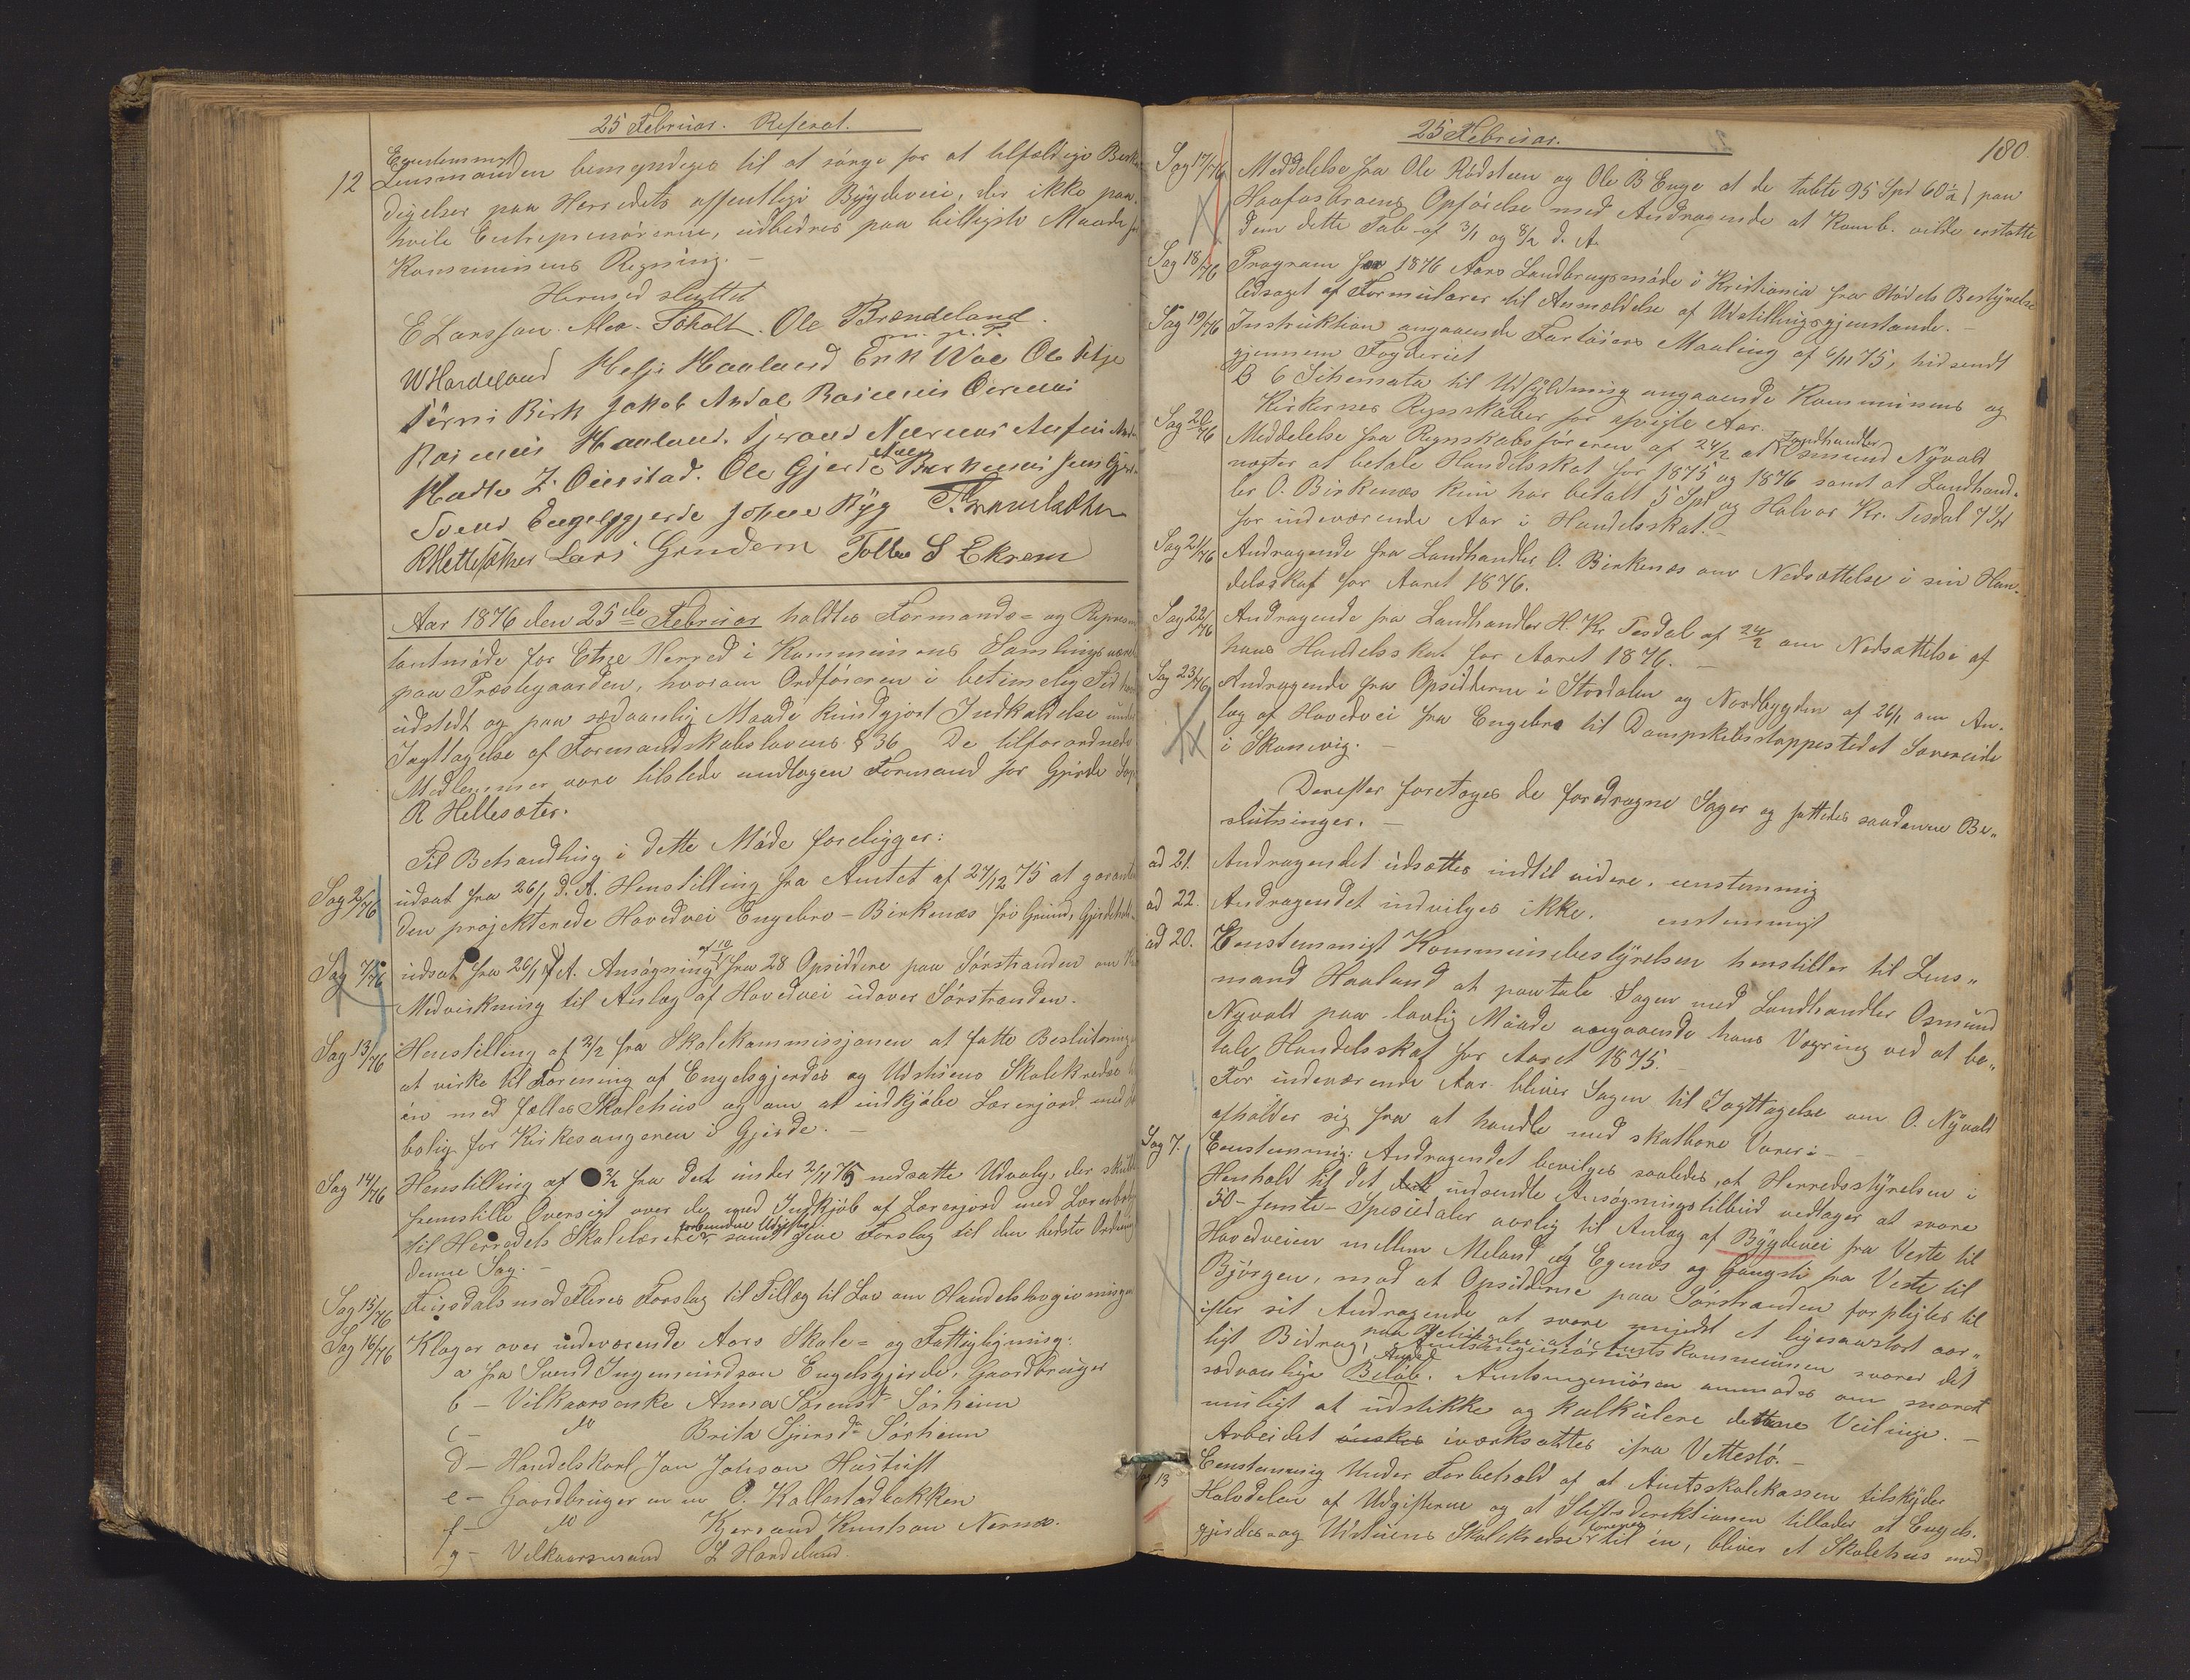 25 Februar. Referat.
12 Eenstemmigt
Lensmanden bemyndiges til at sørge for at tilfældige Besk
digelser paa Herredets offentlige Bygdeveie, der ikke paa-
hvile Entreprenørerne, udbedres paa billigste Maade for
Kommunens Regning. –
Hermed sluttet
E Larsson. Alex. Tøholt. Ole Brendeland
m. p. P.
W Hardeland Helje Haaland Erik Vae Ole
Jakob
Rasmus Haaland.
Ole Gjerde Jens Gjer
Svend Engelsgjerde Johan Ryg
R Hellesøther Lars Grindem Tollev S Ekrem
Aar 1876 den 25de Februar holdtes Formands- og Represen
tantmøde for Etne Herred i Kommunens Samlingsværel
paa Præstegaarden, hvorom Ordføreren i betimelig Tid har
udstedt og paa sædvanlig Maade kundgjort Indkaldelse under
Iagttagelse af Formandskabslovens § 36 De tilforordnede
Medlemmer vare tilstede undtagen Formand for Gjerde Sogn
R Hellesæter.
Til Behandling i dette Møde foreligger:
Sag 2/76 udsat fra 26/1 d. A. Henstilling fra Amtet af 27/12 75 at garante
den projekterede Hovedvei Engebro – Birkenæs fri Grund, Gjerdehold
Sag 7/76 udsat fra 26/1 d. A. Ansøgning af 10/1 fra 28 Opsiddere paa Sørstranden om
Medvirkning til Anlæg af Hovedvei udover Sørstranden.
Sag 13/76 Henstilling af 2/2 fra Skolekommissjonen at fatte Beslutninger
at virke til Forening af Engelsgjerdes og Udstuens Skolekredse til
én med fælles Skolehus og om at indkjøbe Lærerjord med
bolig for Kirkesangeren i Gjerde. –
Sag 14/76 Henstilling af 2/2 fra det under 2/11 75 nedsatte Udvalg, der skulde
fremstille Oversigt over de med Indkjøb af Lærerjord med Lærerbolig
til Herredets Skolelærere forbundne Udgifter samt give Forslag til den bedste Ordning
denne Sag. –
Sag 15/76 Finsdals med Fleres Forslag til Tillæg til Lov om Handelslovgivningen
Sag 16/76 Klager over indeværende Aars Skole- og Fattigligning:
a fra Svend Ingemundson Engelsgjerde, Gaardbruger
b – Vilkaarsenke Anna Sørensdr Sørheim
c – do Brita Sjursdr Sørheim
d – Handelskarl Jon Johnson Hustuft
e – Gaardbruger O. Kallestadbakken
f – do Knutson Nernæs.
g – Vilkaarsmand L Hardeland.
25 Februar.
180.
Sag 17/76 Meddelelse fra Ole Rødsteen og Ole B Enge at de tabte 95 Spd 60 ß paa
Haafosbroens Opførelse med Andragende at Komb. vilde erstatte
dem dette Tab af 3/1 og 8/2 d. A.
Sag 18/76 Program for 1876 Aars Landbrugsmøde i Kristiania fra Mødets Bestyrelse
ledsaget af Formularer til Anmeldelse af Udstillingsgjenstande. –
Sag 19/76 Instruktion angaaende Fartøiers Maaling af 6/11 75, hidsendt
gjennem Fogderiet
B 6 Schemata til Udfyldning angaaende Kommunens og
Kirkernes Regnskaber for afvigte Aar.
Sag 20/76 Meddelelse fra Regnskabsføreren af 24/2 at Landhandler Osmund Nyvold
nægter at betale Handelsskat for 1875 og 1876 samt at Landhand-
ler O. Birkenæs kun har betalt 5 Spd og Halvor Kr. Tesdal 7 Spd
for indeværende Aar i Handelsskat. –
Sag 21/76 Andragende fra Landhandler O. Birkenæs om Nedsættelse i sin Han-
delsskat for Aaret 1876.
Sag 22/76 Andragende fra Landhandler H. Kr Tesdal af 24/2 om Nedsættelse af
hans Handelsskat for Aaret 1876. –
Sag 23/76 Andragende fra Opsidderne i Stordalen og Nordbygden af 26/1 om An-
læg af Hovedvei fra Engebro til Dampskibsstoppestedet Sævereide
i Skanevig. –
Derefter foretoges de foredragne Sager og fattedes saadanne Be-
slutninger. –
ad 21. Andragendet udsættes indtil videre. eenstemmig
ad 22. Andragendet indvilges ikke. enstemmigt
ad 20. Eenstemmigt Kommunebestyrelsen henstiller til Lens-
mand Haaland at paatale Sagen med Landhandler Osmund
Nyvold paa lovlig Maade angaaende hans Vægring ved at be-
tale Handelsskat for Aaret 1875.
For indeværende Aar bliver Sagen til Iagttagelse om O. Nyvold
afholder sig fra at handle med skatbare Varer. –
Sag 7. Eenstemmig: Andragendet bevilges saaledes, at Herredsstyrelsen i
Henhold til det indsendte Ansøgningstilbud vedtager at svare
50 – femti – Spesiedaler aarlig til Anlæg af Bygdevei fra Veste til
Hovedveien mellem Meland og Egenæs og Gangsti fra Veste til
Bjørgen, mod at Opsidderne paa Sørstranden forpligtes til
efter sit Andragende at svare mindst et ligesaastort aar-
ligt Bidrag, paa Betingelse at Amtskommunen svarer det
sædvanlige Beløb. Amtsingeniøren anmodes om snarest
muligt at udstikke og kalkulere denne Veilinje. –
Arbeidet ønskes iværksættes ifra Vettestø. –
13 Eenstemmig Under Forbehold af at Amtsskolekassen tilskyder
Halvdelen af Udgifterne og at Stiftsdirektionen tillader at Engels-
gjerdes og Udstuens Skolekredse forenes til én, bliver et Skolehus med